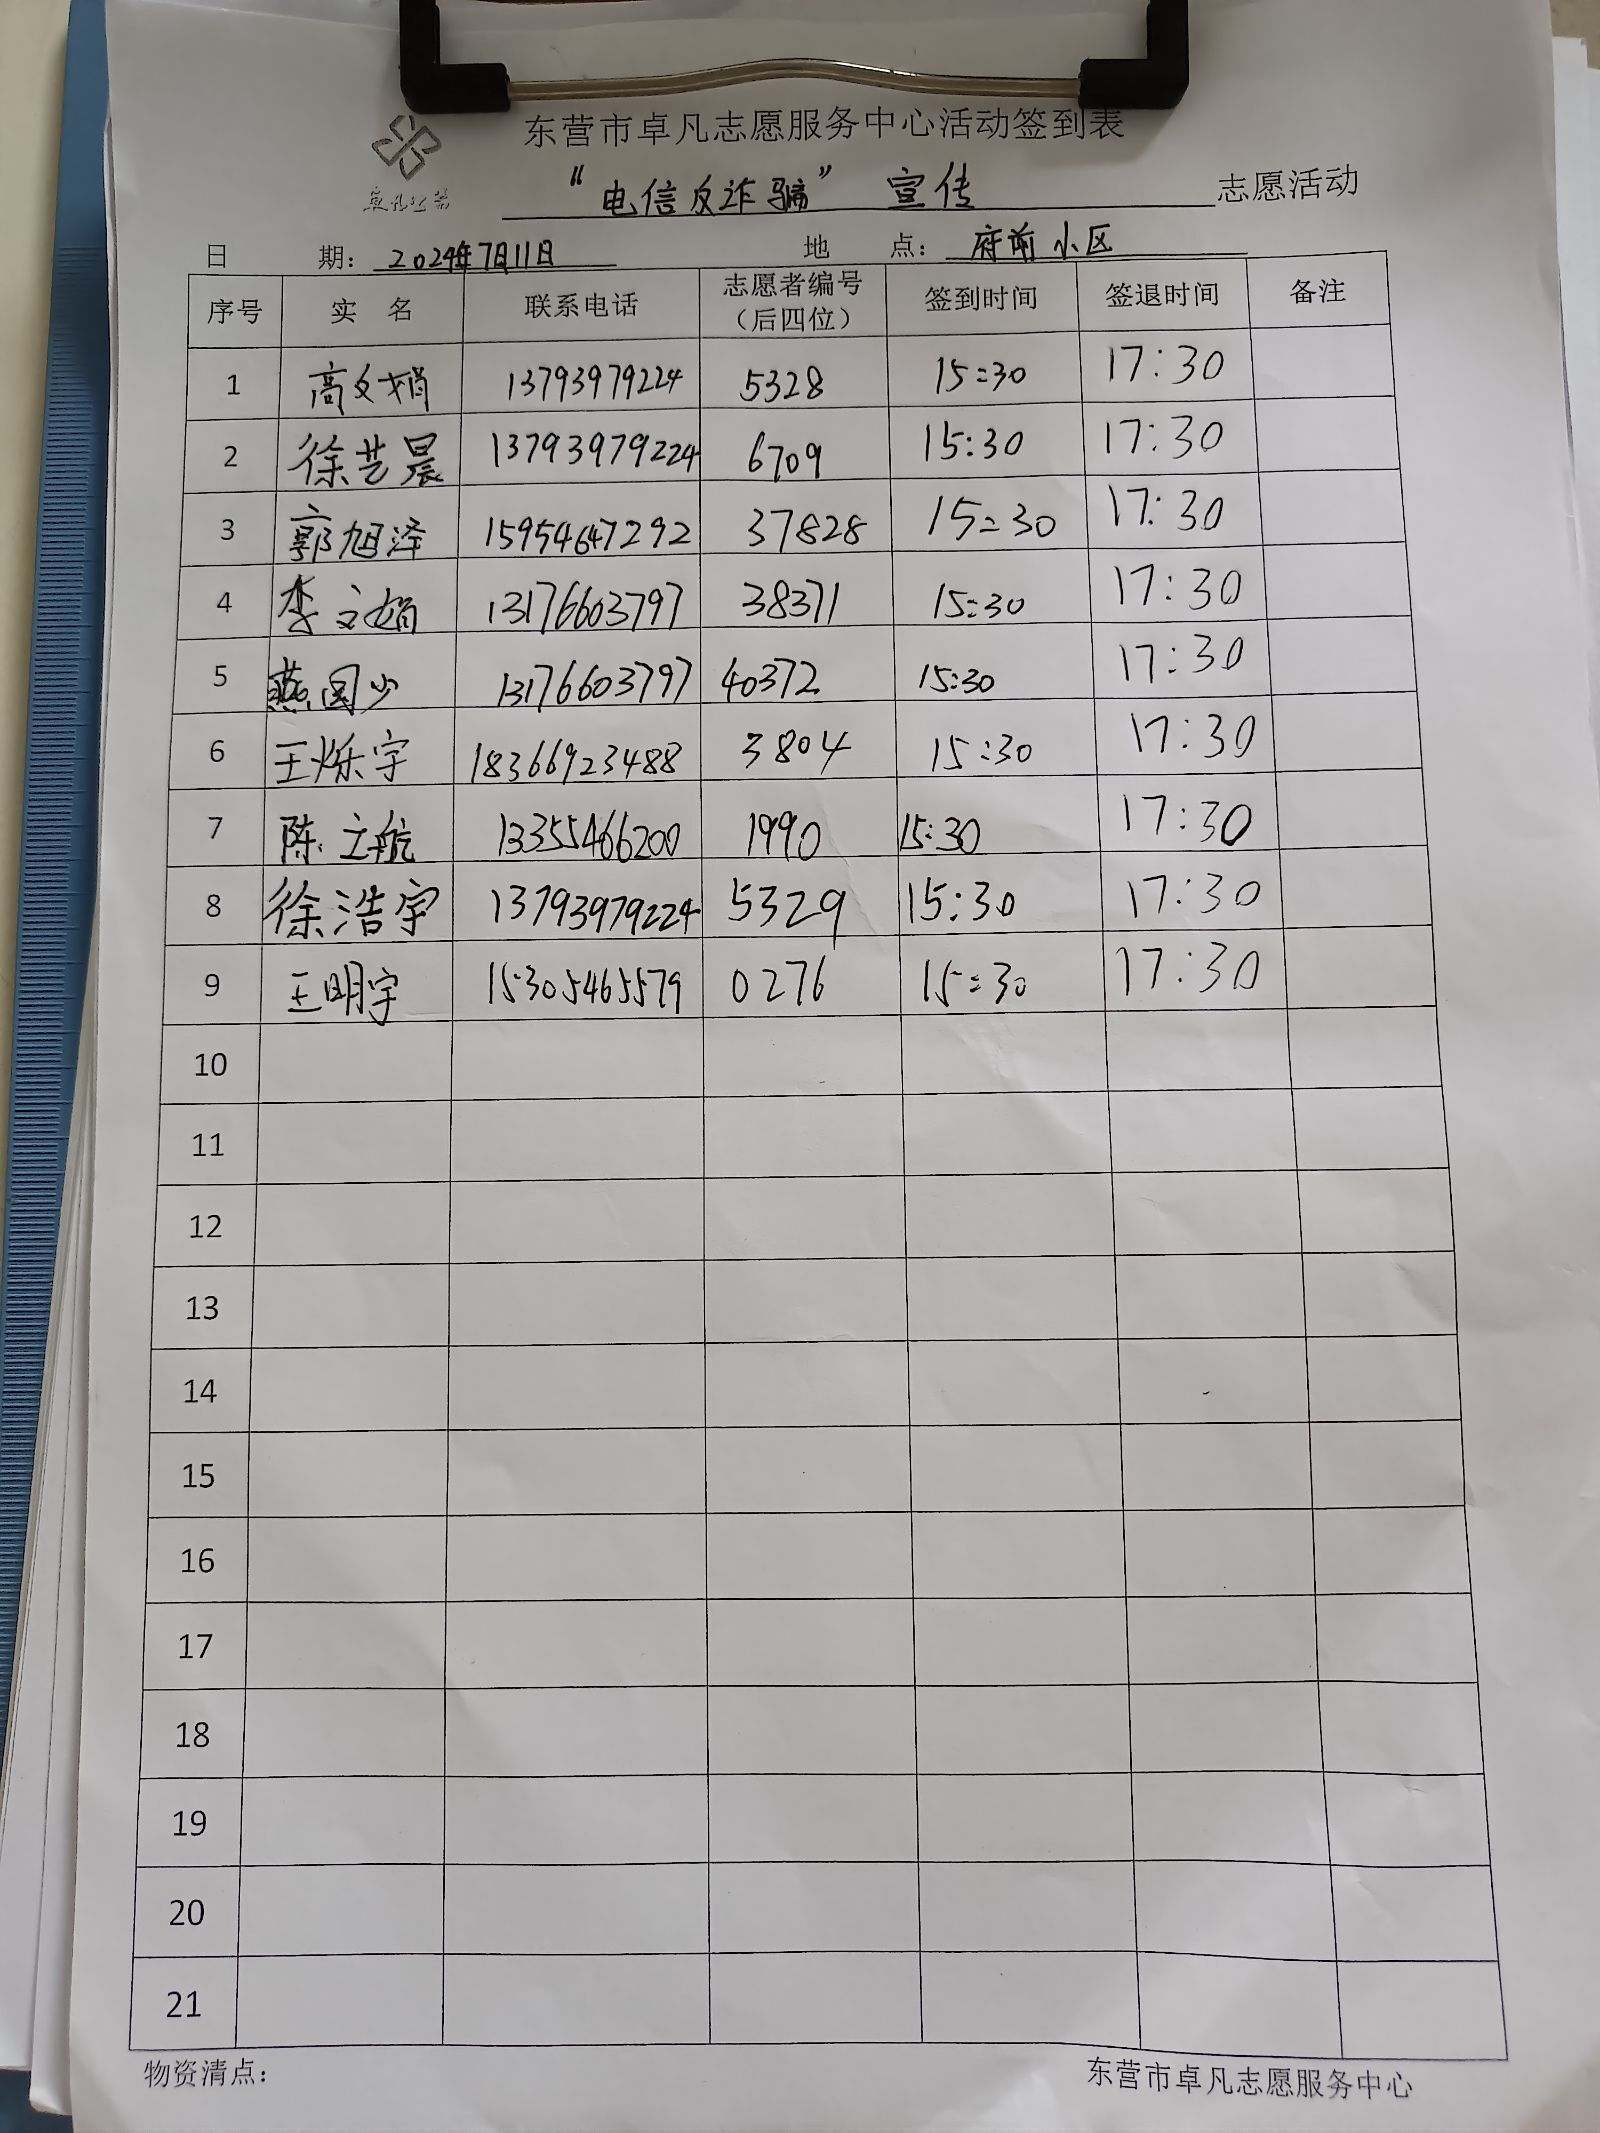 东营市卓凡志愿服务中心活动签到表
卓凡公益
“电信反诈骗” 宣传 志愿活动
日 期: 2024年7月11日 地 点: 府前小区
序号 实 名 联系电话 志愿者编号（后四位） 签到时间 签退时间 备注
1 高文娟 13793979224 5328 15:30 17:30
2 徐艺晨 13793979224 6709 15:30 17:30
3 郭旭泽 15954647292 37828 15:30 17:30
4 李文娟 13176603797 38371 15:30 17:30
5 燕国少 13176603797 40372 15:30 17:30
6 王烁宇 18366923488 3804 15:30 17:30
7 陈立航 13355466200 1990 15:30 17:30
8 徐浩宇 13793979224 5329 15:30 17:30
9 王明宇 15305465579 0276 15:30 17:30
10
11
12
13
14
15
16
17
18
19
20
21
物资清点: 东营市卓凡志愿服务中心